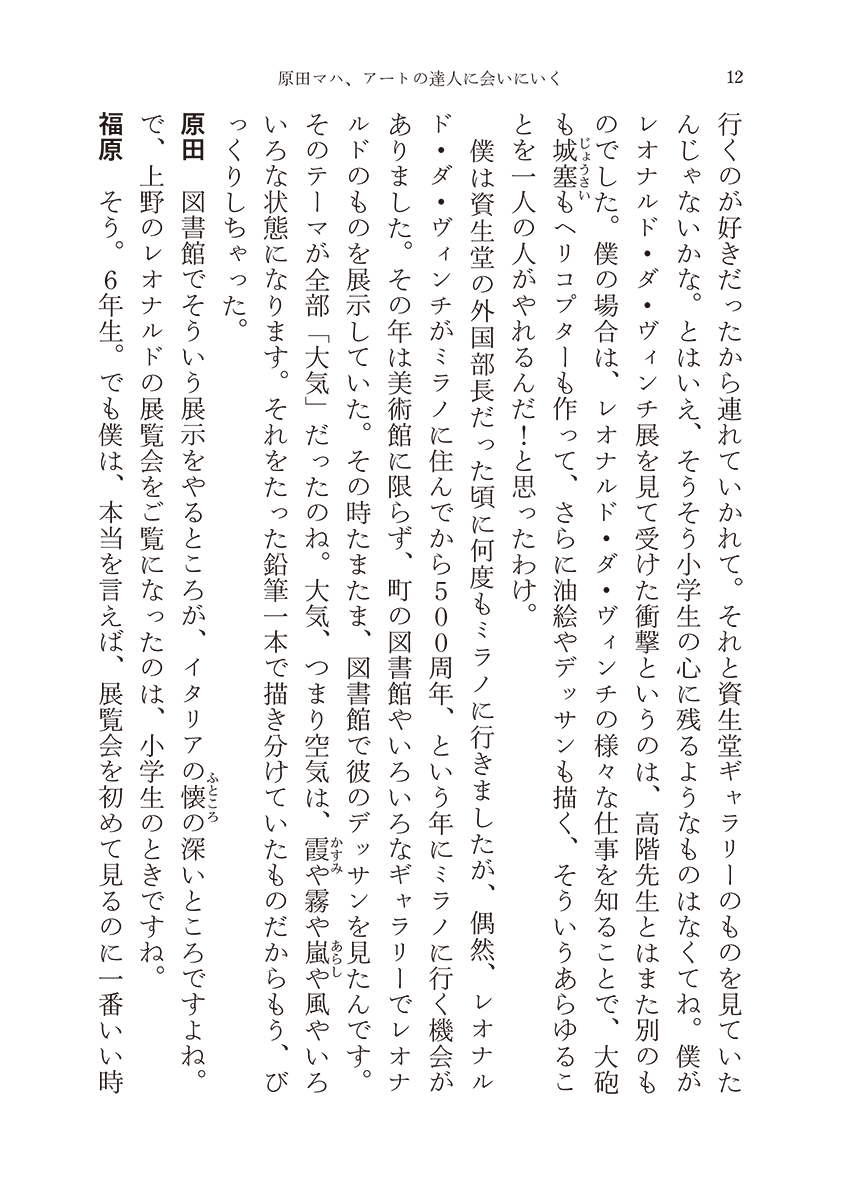 原田マハ、アートの達人に会いにいく
12
行くのが好きだったから連れていかれて。それと資生堂ギャラリーのものを見ていた
んじゃないかな。とはいえ、そうそう小学生の心に残るようなものはなくてね。僕が
レオナルド・ダ・ヴィンチ展を見て受けた衝撃というのは、高階先生とはまた別のも
のでした。僕の場合は、レオナルド・ダ・ヴィンチの様々な仕事を知ることで、大砲
も城塞もヘリコプターも作って、さらに油絵やデッサンも描く、そういうあらゆるこ
じょうさい
とを一人の人がやれるんだ！と思ったわけ。
僕は資生堂の外国部長だった頃に何度もミラノに行きましたが、偶然、レオナル
ド・ダ・ヴィンチがミラノに住んでから５００周年、という年にミラノに行く機会が
ありました。その年は美術館に限らず、町の図書館やいろいろなギャラリーでレオナ
ルドのものを展示していた。その時たまたま、図書館で彼のデッサンを見たんです。
そのテーマが全部「大気」だったのね。大気、つまり空気は、霞や霧や嵐や風やいろ
かすみ
あらし
いろな状態になります。それをたった鉛筆一本で描き分けていたものだからもう、び
っくりしちゃった。
原田　図書館でそういう展示をやるところが、イタリアの懐の深いところですよね。
ふところ
で、上野のレオナルドの展覧会をご覧になったのは、小学生のときですね。
福原　そう。６年生。でも僕は、本当を言えば、展覧会を初めて見るのに一番いい時